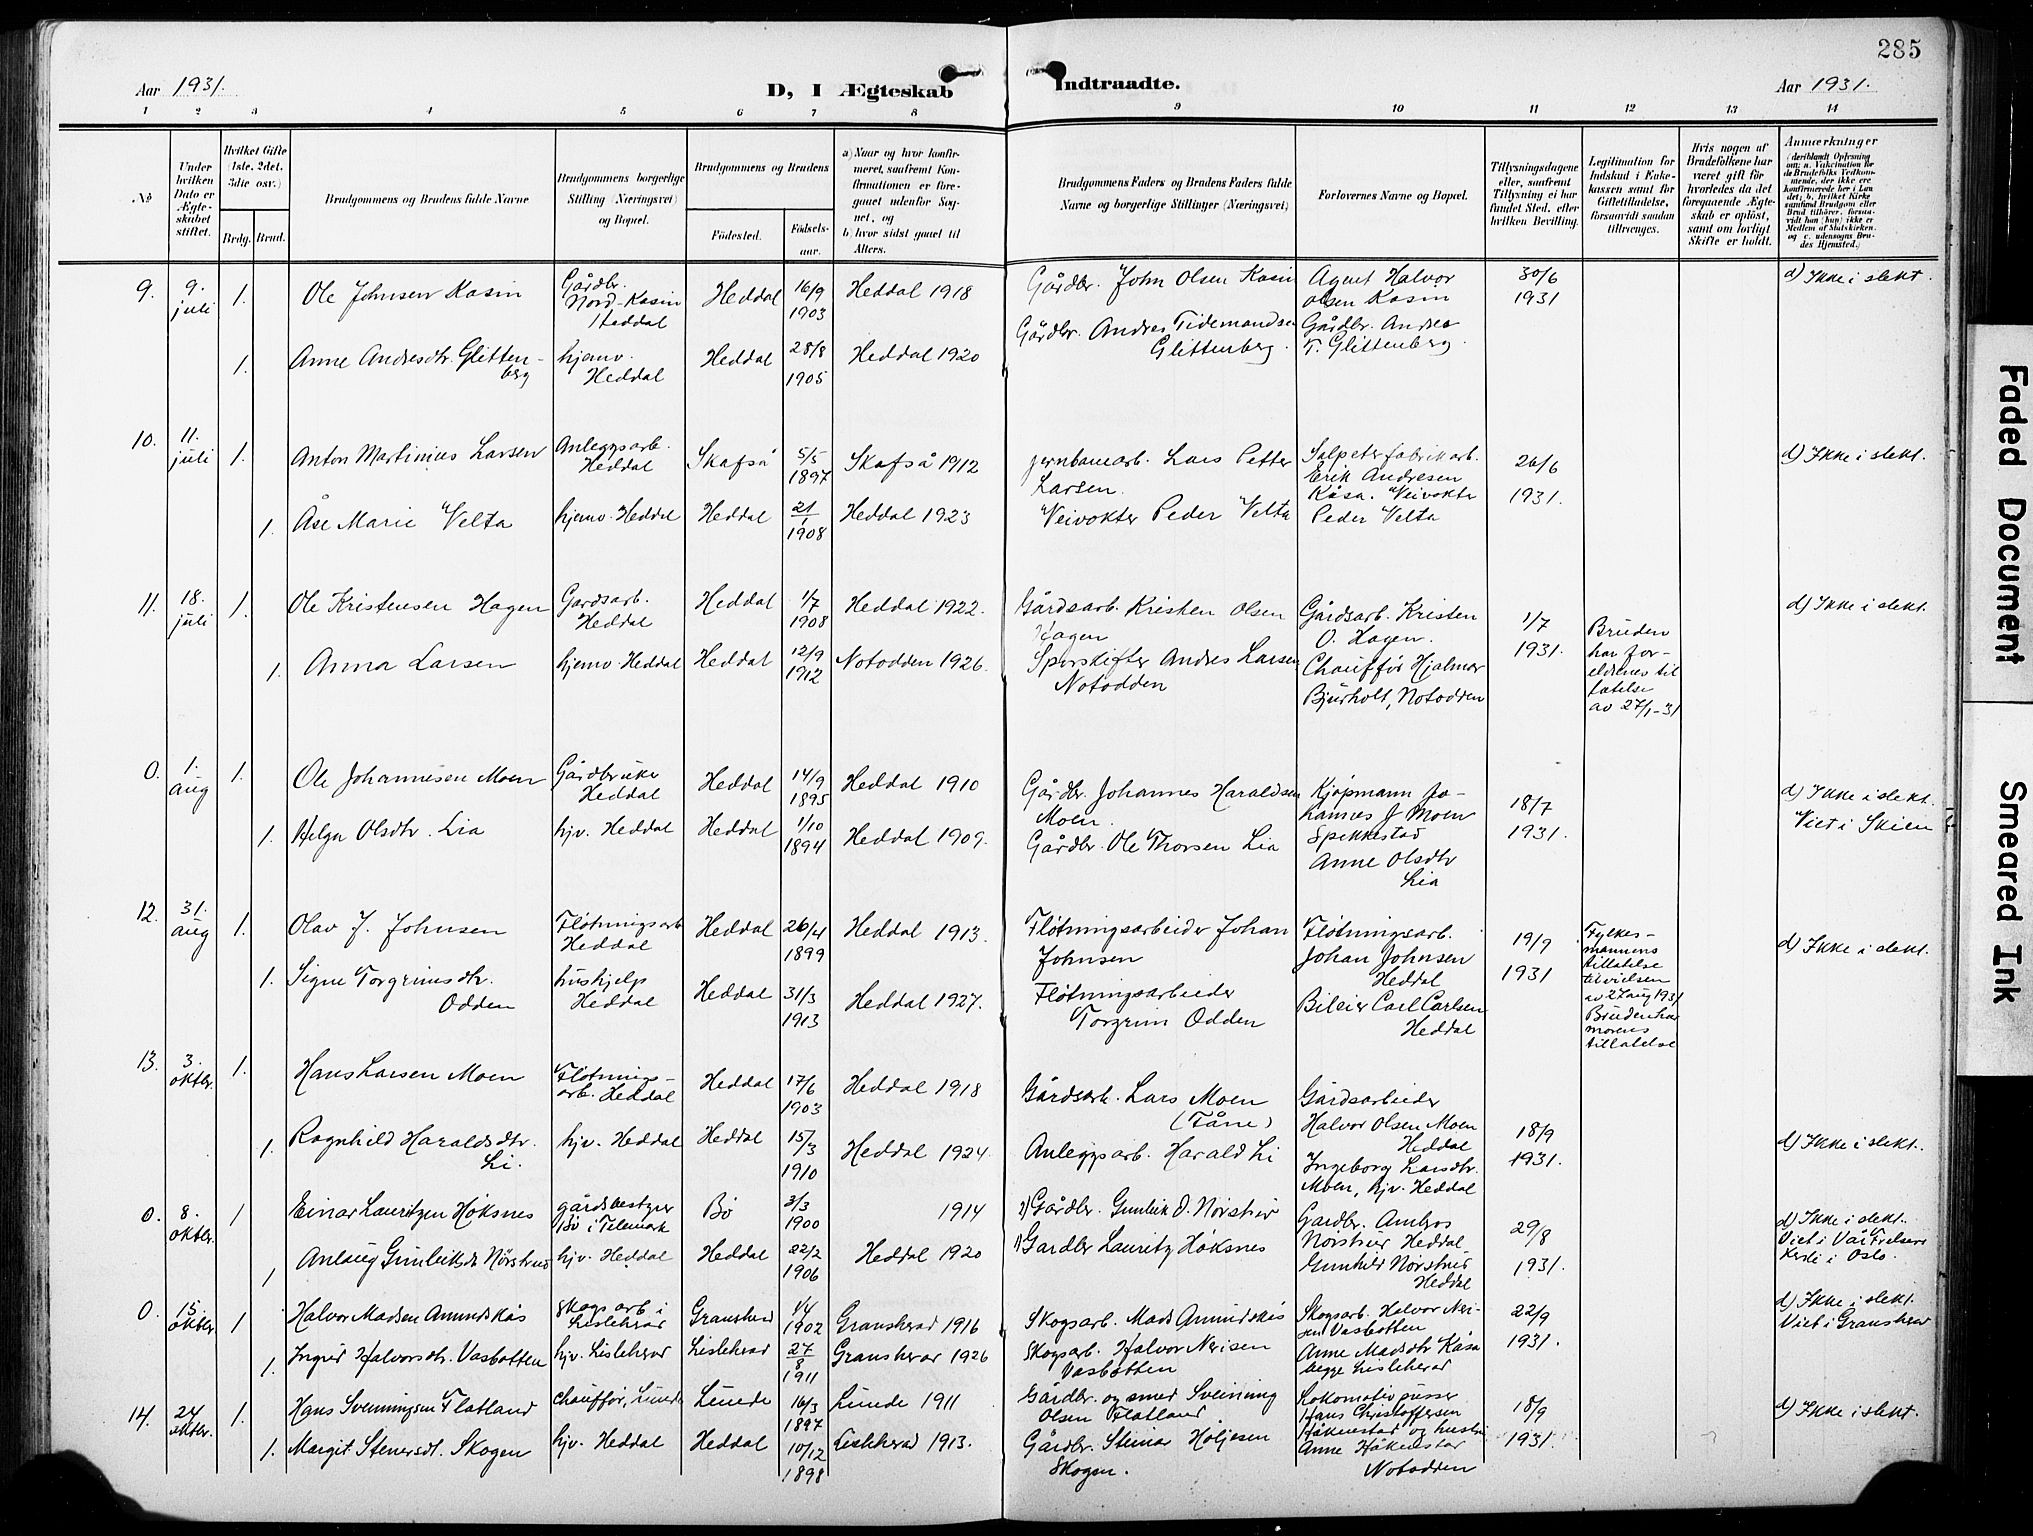 285
Aar 1931.
D, I Ægteskab Indtraadte.
Aar 1931.
1 2 3 4 5 6 7 8 9 10 11 12 13 14
No
Under hvilken Dato er Ægteskabet stiftet.
Hvilket Gifte (1ste, 2det, 3die osv.)
Brdg. Brud.
Brudgommens og Brudens fulde Navne
Brudgommens borgerlige Stilling (Næringsvei) og Bopæl.
Brudgommens og Brudens
Fødested.
Fødselsaar.
a) Naar og hvor konfirmeret, saafremt Konfirmationen er foregaaet udenfor Sognet, og
b) hvor sidst gaaet til Alters.
Brudgommens Faders og Brudens Faders fulde Navne og borgerlige Stillinger (Næringsvei)
Forlovernes Navne og Bopæl.
Tillysningsdagene eller, saafremt Tillysning ei har fundet Sted, efter hvilken Bevilling.
Legitimation for Indskud i Enkekassen samt for Giftetilladelse, forsaavidt saadan tiltrænges.
Hvis nogen af Brudefolkene har været gift før hvorledes da det foregaaende Ægteskab er opløst, samt om lovligt Skifte er holdt.
Anmerkninger
(deriblandt Oplysning om: a. Vakcination for de Brudefolks Vedkommende, der ikke ere konfirmerede her i Landet; b. hvilket Kirkesamfund Brudgom eller Brud tilhører, forsaavidt han (hun) ikke er Medlem af Statskirken, og c. udensogns Brudes Hjemsted.)
9. 9. juli 1. Ole Johnsen Kasin Gårdbr. Nord-Kasin Heddal Heddal 16/9 1903 Heddal 1918 Gårdbr. John Olsen Kasin Agent Halvor Olsen Kasin 30/6 1931 d) Ikke i slekt.
1. Anne Andresdtr. Glittenberg hjemv. Heddal Heddal 28/8 1905 Heddal 1920 Gårdbr. Andres Tidemandsen Glittenberg. Gårdbr. Andres T. Glittenberg.
10. 11. juli 1. Anton Martinius Larsen Anleggsarb. Heddal Skafså 5/5 1897 Skafså 1912 Jernbanearb. Lars Petter Larsen. Salpeterfabrikarb. Erik Andresen Kåsa. 26/6 1931. d) Ikke i slekt.
1. Åse Marie Velta hjemv. Heddal Heddal 21/1 1908 Heddal 1923 Veivokter Peder Velta Veivokter Peder Velta
11. 18. juli 1. Ole Kristensen Hagen Gardsarb. Heddal Heddal 1/7 1908 Heddal 1922. Gårdsarb. Kristen Olsen Hagen Gårdsarb. Kristen O. Hagen. 1/7 1931. Bruden har foreldrenes tillatelse av 27/1-31 d) Ikke i slekt.
1. Anna Larsen hjemv. Heddal Heddal 12/9 1912 Notodden 1926. Sporskifter Andres Larsen Notodden Chauffør Hjalmar Bjürholt, Notodden
0. 1. aug 1. Ole Johannesen Moen Gårdbruker Heddal Heddal 14/9 1895 Heddal 1910 Gårdbr. Johannes Haraldsen Moen. Kjøpmann Johannes J. Moen Spikkestad 18/7 1931. d) Ikke i slekt. Viet i Skien
1. Helga Olsdtr. Lia hjv. Heddal Heddal 1/10 1894 Heddal 1909. Gårdbr. Ole Thorsen Lia Anne Olsdtr Lia
12. 31. aug 1. Olav J. Johnsen Fløtningsarb Heddal Heddal 26/4 1899 Heddal 1913. Fløtningsarbeider Johan Johnsen Fløtningsarb. Johan Johnsen Heddal 19/9 1931 Fylkesmannens tillatelse til vielsen av 27 aug 1931 Bruden har morens tillatelse d) Ikke i slekt.
1. Signe Torgrimsdtr. Odden hushjelp Heddal Heddal 31/3 1913 Heddal 1927. Fløtningsarbeider Torgrim Odden Bileier Carl Carlsen Heddal
13. 3. oktbr. 1. Hans Larsen Moen Fløtningsarb. Heddal Heddal 17/6 1903 Heddal 1918 Gårdsarb. Lars Moen (Tåne) Gårdsarbeider Halvor Olsen Moen Heddal 18/9 1931. d) Ikke i slekt.
1. Ragnhild Haraldsdtr. Li. hjv. Heddal Heddal 15/3 1910 Heddal 1924. Anleggsarb. Harald Li Ingeborg Larsdtr. Moen, hjv. Heddal
0. 8. oktbr. 1 Einar Lauritzen Høksnes gårdsbestyrer Bø i Telemark Bø 3/3 1900 1914 2) Gårdbr. Gunleik O. Nørstrud Gardbr. Ambros Nørstrud Heddal. 29/8 1931. d) Ikke i slekt. Viet i Vår Frelsers Kirke i Oslo.
1 Anlaug Gunleiksdtr Nørstrud hjv. Heddal Heddal 22/2 1906 Heddal 1920 1) Gardbr Lauritz Høksnes Gunhild Nørstrud Heddal
0. 15. oktbr. 1 Halvor Madsen Amundskås Skogsarb i Lisleherad Gransherad 1/4 1902 Gransherad 1916 Skogsarb. Mads Amundskås Skogsarb. Halvor Nerisen Vasbotten 22/9 1931. d) Ikke i slekt. Viet i Gransherad
1. Ingrid Halvorsdtr. Vasbotten hjv. Lisleherad Lisleherad 27/8 1911 Gransherad 1926 Skogsarb. Halvor Nerisen Vasbotten Anne Madsdtr Kåsa begge Lisleherad
14. 24 oktbr. 1. Hans Sveinungsen Flatland Chauffør, Lunde Lunde 16/3 1897 Lunde 1911 Gårdbr. og smed Sveinung Olsen Flatland. Lokomotivpusser Hans Christoffersen Håkenstad og hustru 18/9 1931. d) Ikke i slekt.
1. Margit Stenersdt. Skogen hjv. Heddal Heddal 10/12 1898 Lisleherad 1913. Gårdbr. Steinar Holjesen Skogen. Anne Håkenstad Notodden
Faded Document
Smeared Ink